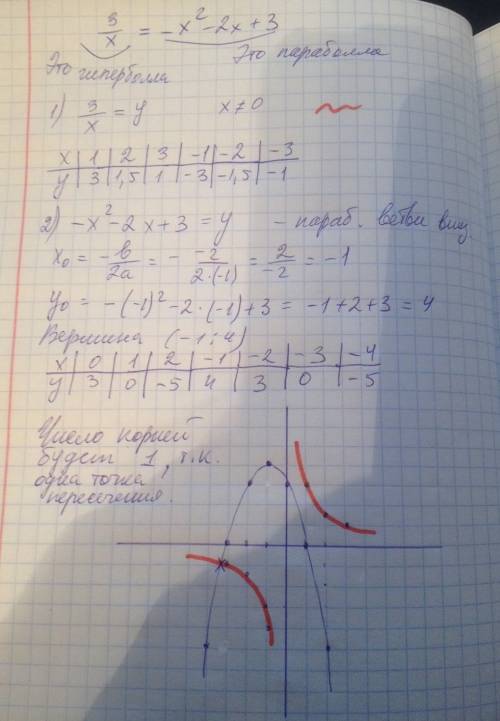 3/x = -x² - 2x + 3
Это гипербола Это параболла
1) 3/x = y x ≠ 0
x | 1 | 2 | 3 | -1 | -2 | -3
y | 3 | 1,5 | 1 | -3 | -1,5 | -1
2) -x² - 2x + 3 = y - параб. ветви вниз.
x₀ = -b/2a = - -2/2·(-1) = 2/-2 = -1
y₀ = -(-1)² - 2·(-1) + 3 = -1 + 2 + 3 = 4
Вершина (-1; 4)
x | 0 | 1 | 2 | -1 | -2 | -3 | -4
y | 3 | 0 | -5 | 4 | 3 | 0 | -5
Число корней
будет 1, т.к.
одна точка
пересечения.